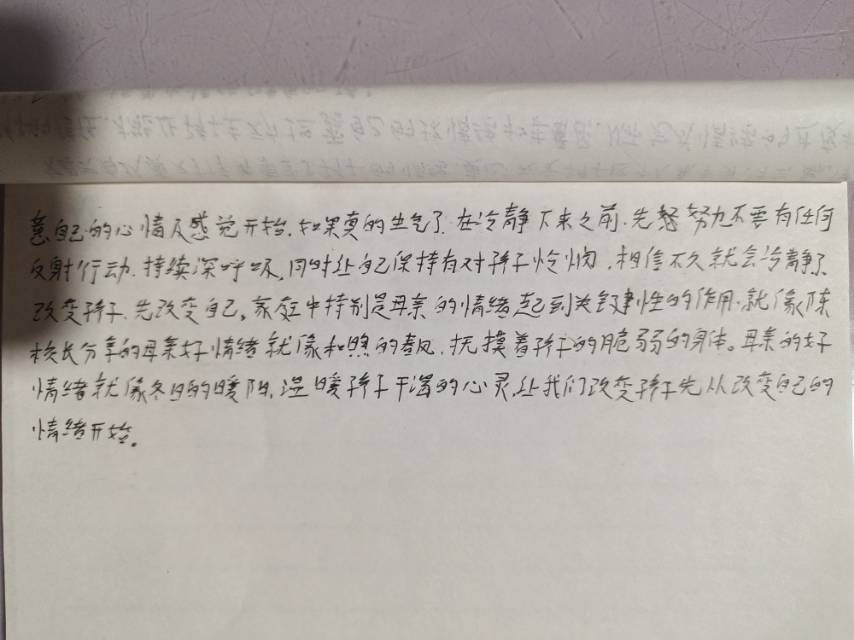 意自己的心情及感觉开始,如果真的生气了.在冷静下来之前.先努努力不要有任何
反射行动.持续深呼吸,同时让自己保持有对孩子怜悯,相信不久就会冷静了
改变孩子.先改变自己。家庭中特别是母亲的情绪起到关键性的作用.就像陈
校长分享的母亲好情绪就像和煦的春风.抚摸着孩子的脆弱的身体。母亲的好
情绪就像冬日的暖阳,温暖孩子干涸的心灵,让我们改变孩子先从改变自己的
情绪开始。